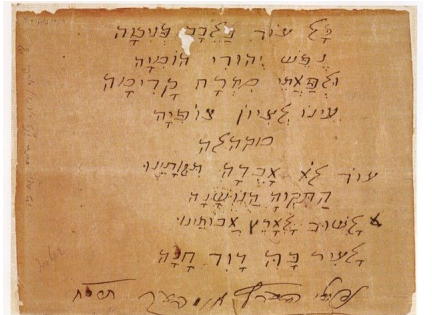 כָּל עוֹד בַּלֵּבָב פְּנִימָה
נֶפֶשׁ יְהוּדִי הוֹמִיָּה
וּלְפַאֲתֵי מִזְרָח קָדִימָה
עינוֹ לְצִיוֹן צוֹפִיָּה
מקהלה
עוֹד לֹא אָבְדָה תִּקְוָתֵינוּ
הַתִּקְוָה הַנּוֹשָׁנָה
לָשׁוּב לָאָרֶץ אֲבוֹתֵינוּ
לָעִיר בָּהּ דָּוִד חָנָה
נפתלי הערץ אימבער